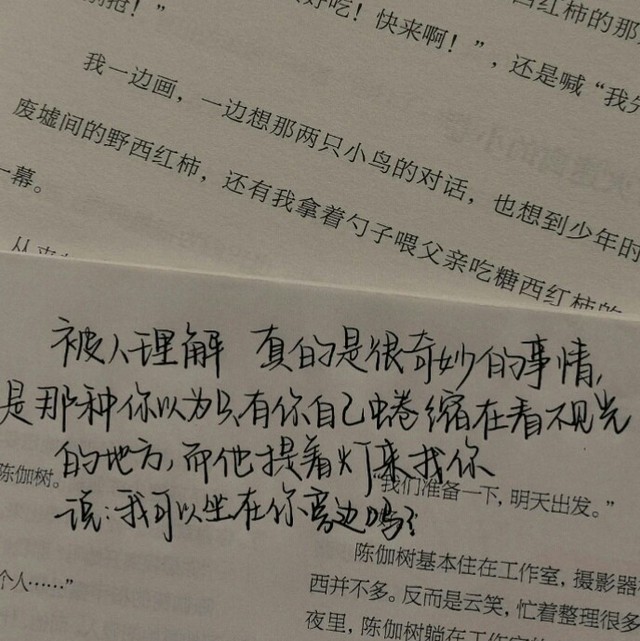 抢！”
好吃！快来啊！”，还是喊“我
西红柿的那
我一边画，一边想那两只小鸟的对话，也想到少年时
废墟间的野西红柿，还有我拿着勺子喂父亲吃糖西红柿的
一幕。
被人理解 真的是很奇妙的事情，
是那种你以为只有你自己蜷缩在看不见光
的地方，而他提着灯来找你
说：我可以坐在你旁边吗？
陈伽树。
我们准备一下，明天出发。”
陈伽树基本住在工作室，摄影器
个人……”
西并不多。反而是云笑，忙着整理很多
夜里，陈伽树躺在工作室